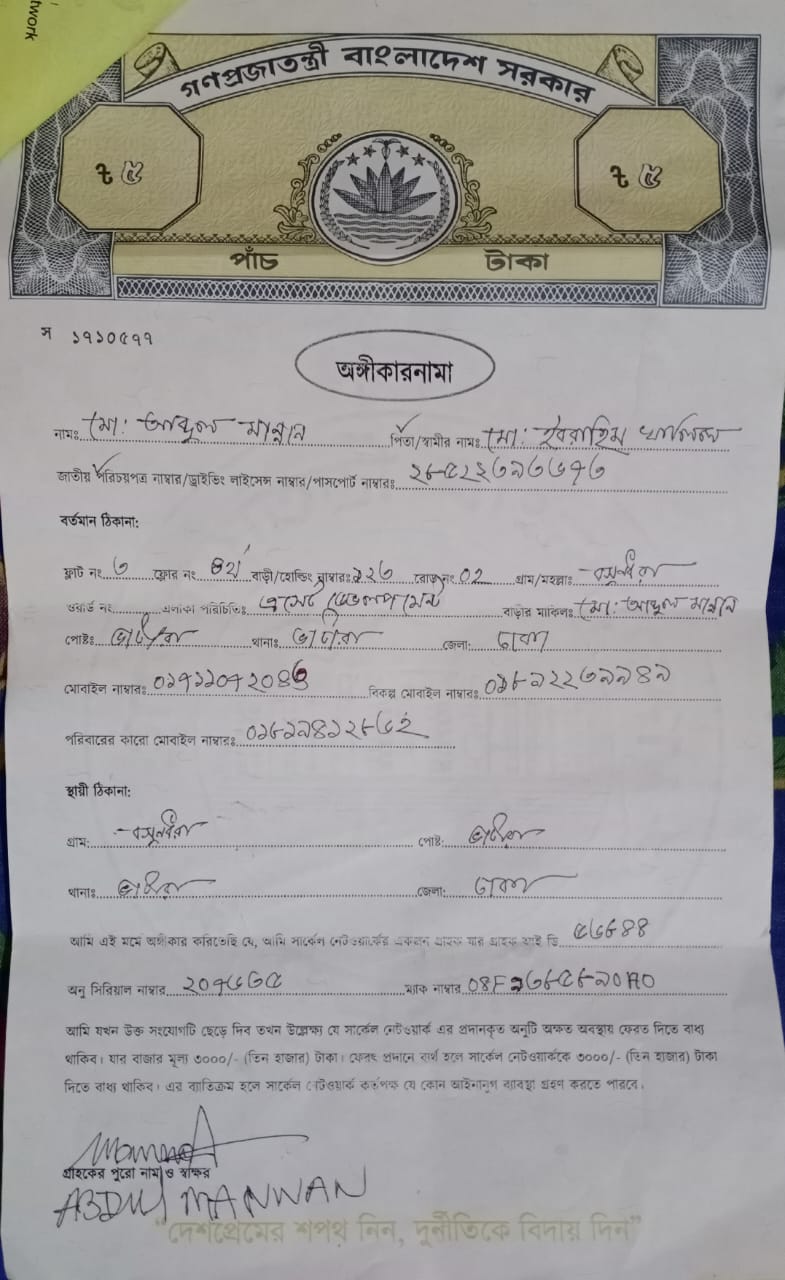 twork
গণপ্রজাতন্ত্রী বাংলাদেশ সরকার
৳ ৫ ৳ ৫
পাঁচ টাকা
স ১৭১০৫৭৭
অঙ্গীকারনামা
নামঃ মো: আব্দুল মান্নান পিতা/স্বামীর নামঃ মো: ইবরাহিম খলিল
জাতীয় পরিচয়পত্র নাম্বার/ড্রাইভিং লাইসেন্স নাম্বার/পাসপোর্ট নাম্বারঃ
বর্তমান ঠিকানা:
ফ্লাট নং ৩ ফ্লোর নং বাড়ী/হোল্ডিং নাম্বারঃ ১২৩ রোড নং 02 গ্রাম/মহল্লাঃ বসুন্ধরা
ওয়ার্ড নং এলাকা পরিচিতিঃ বাড়ীর মালিকঃ মো: আব্দুল মান্নান
পোষ্টঃ ভাটারা থানাঃ ভাটারা জেলা: ঢাকা
মোবাইল নাম্বারঃ বিকল্প মোবাইল নাম্বারঃ
পরিবারের কারো মোবাইল নাম্বারঃ
স্থায়ী ঠিকানা:
গ্রাম: বসুন্ধরা পোষ্ট: ভাটারা
থানাঃ ভাটারা জেলা: ঢাকা
আমি এই মর্মে অঙ্গীকার করিতেছি যে, আমি সার্কেল নেটওয়ার্কের একজন গ্রাহক যার গ্রাহক আই ডি
অনু সিরিয়াল নাম্বার ম্যাক নাম্বার
আমি যখন উক্ত সংযোগটি ছেড়ে দিব তখন উল্লেক্ষ্য যে সার্কেল নেটওয়ার্ক এর প্রদানকৃত অনুটি অক্ষত অবস্থায় ফেরত দিতে বাধ্য
থাকিব। যার বাজার মূল্য ৩০০০/- (তিন হাজার) টাকা। ফেরৎ প্রদানে ব্যর্থ হলে সার্কেল নেটওয়ার্ককে ৩০০০/- (তিন হাজার) টাকা
দিতে বাধ্য থাকিব। এর ব্যতিক্রম হলে সার্কেল নেটওয়ার্ক কর্তৃপক্ষ যে কোন আইনানুগ ব্যবস্থা গ্রহণ করতে পারবে।
গ্রাহকের পুরো নাম ও স্বাক্ষর
ABDUL MANNAN
“দেশপ্রেমের শপথ নিন, দুর্নীতিকে বিদায় দিন”